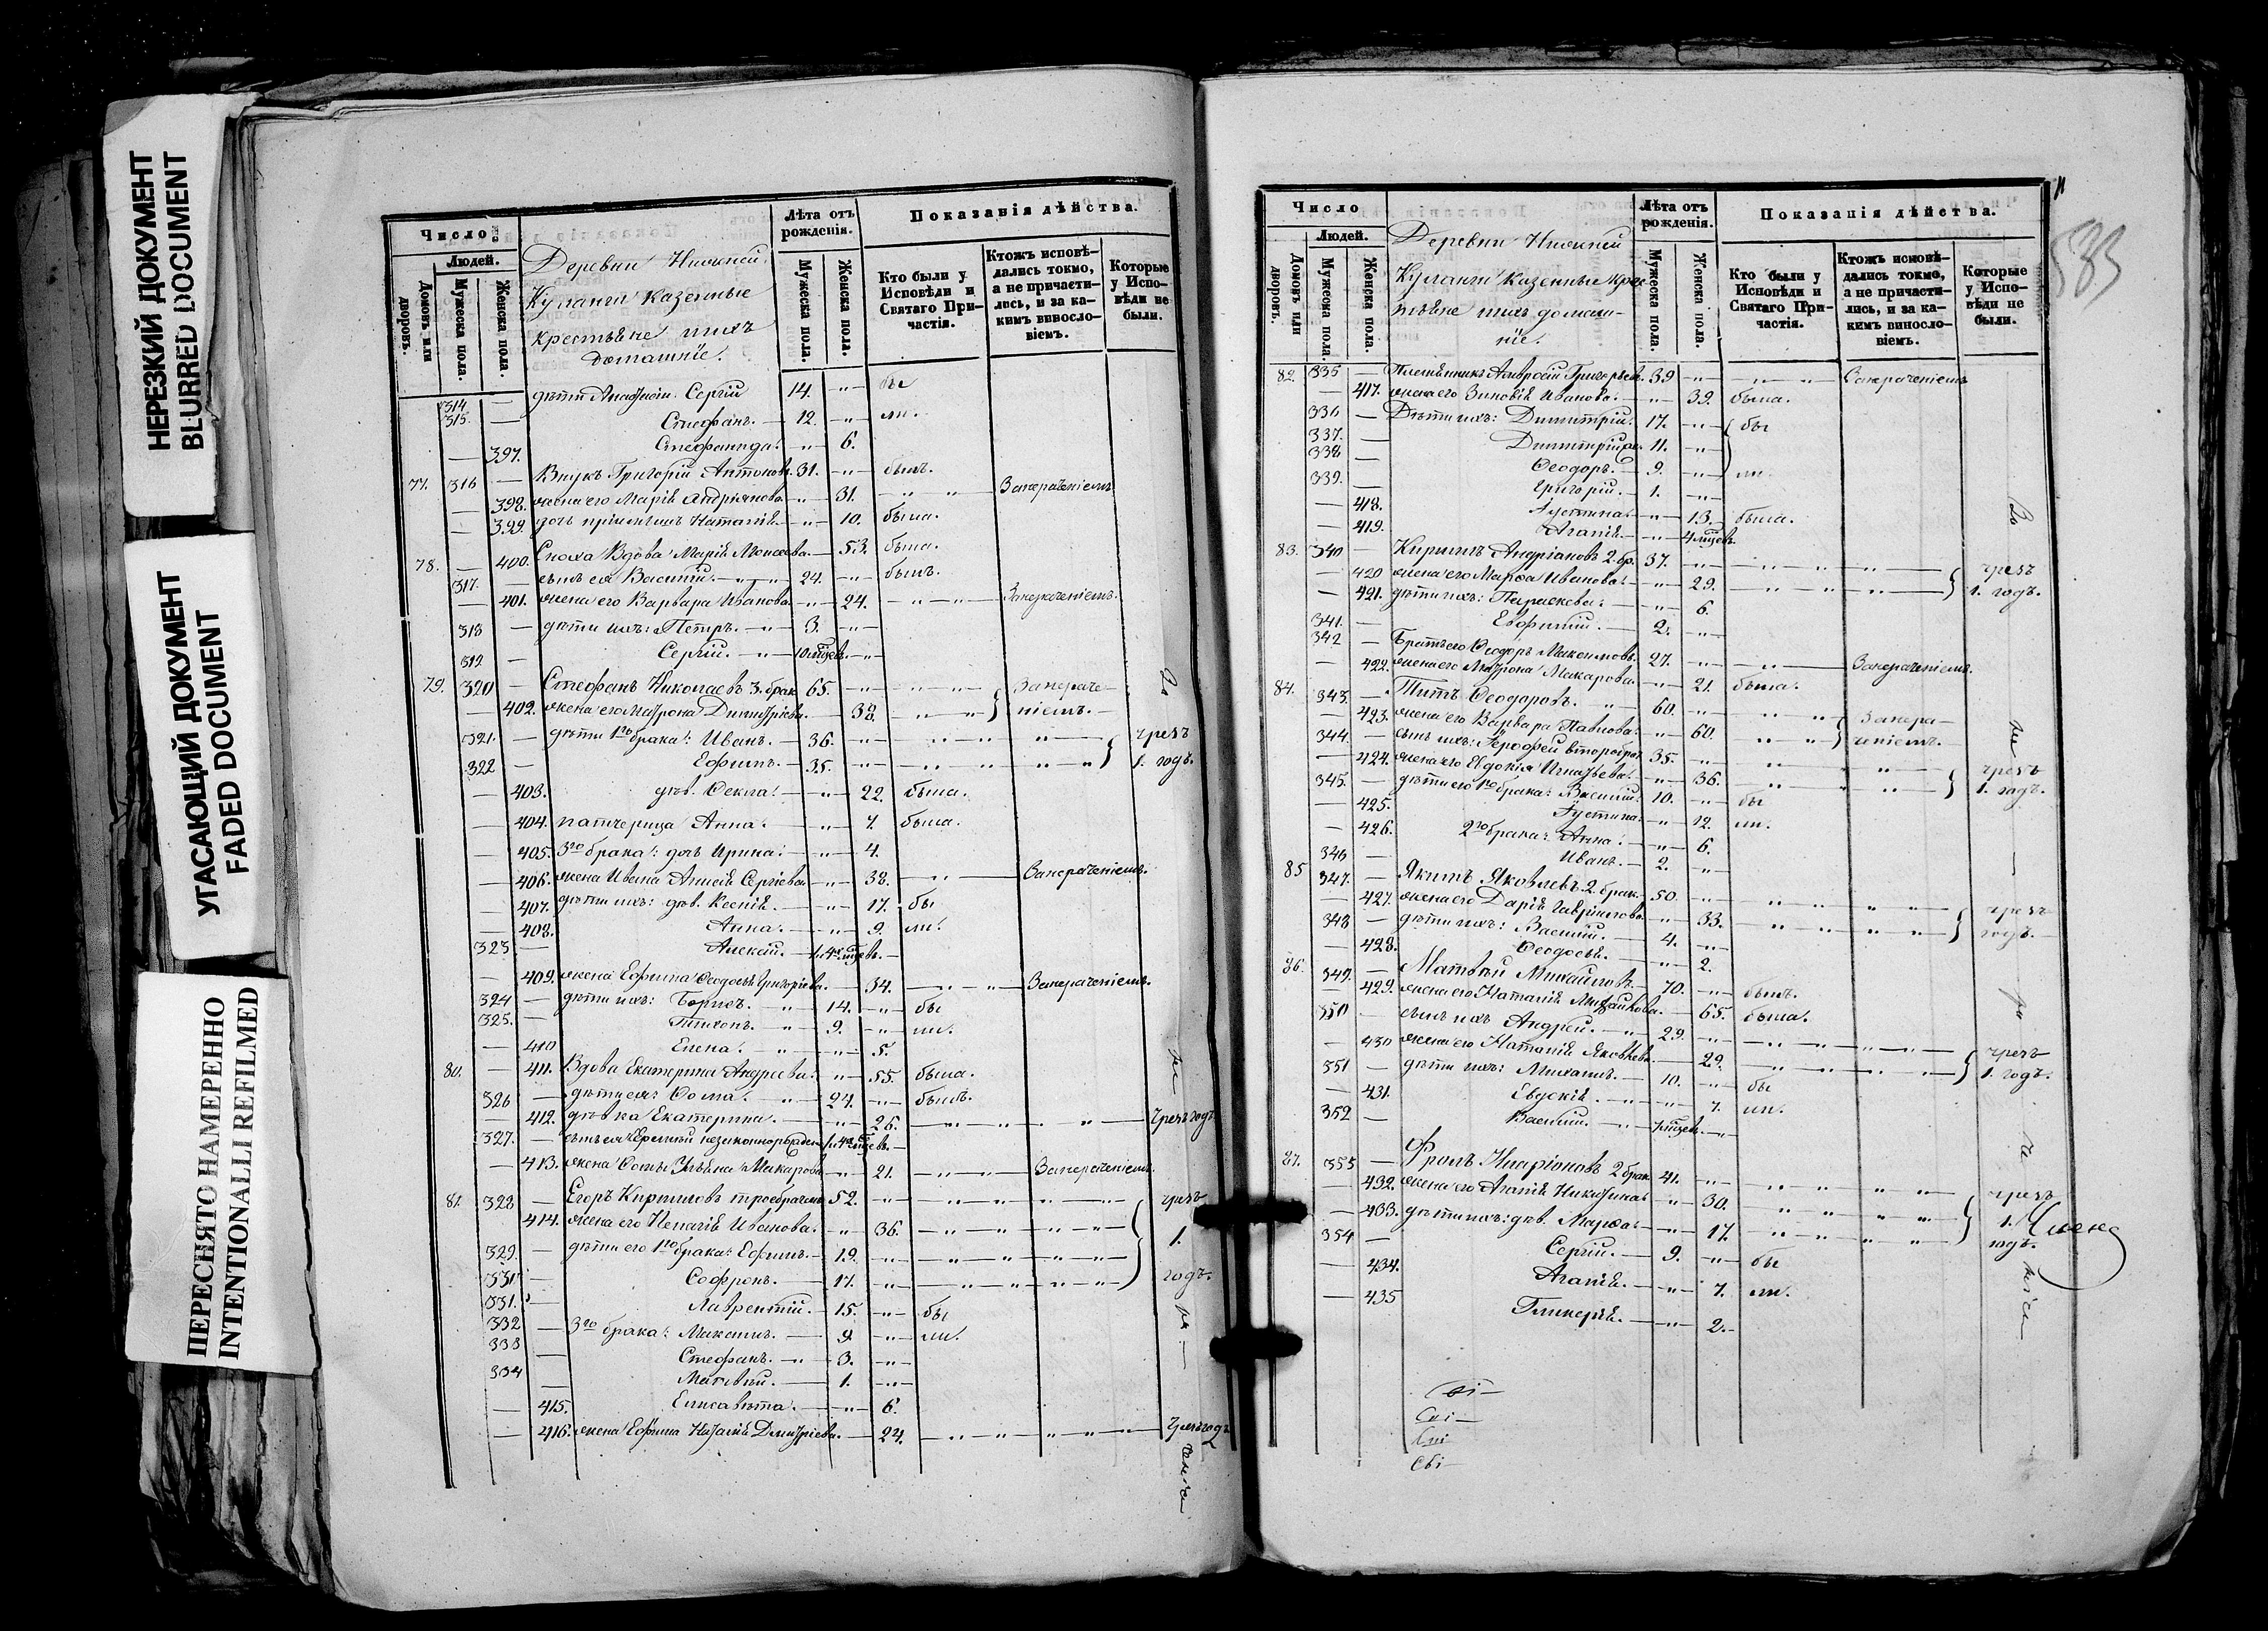 НЕРЕЗКИЙ ДОКУМЕНТ
BLURRED DOCUMENT
УГАСАЮЩИЙ ДОКУМЕНТ
FADED DOCUMENT
ПЕРЕСНЯТО НАМЕРЕННО
INTENTIONALLI REFILMED
Число
Людей.
Домовъ или дворовъ.
Мужеска пола.
Женска пола.
Деревни Нижней
Куланги казенные
крестьяне ихъ
домашніе.
Лѣта отъ рожденія.
Мужеска пола.
Женска пола.
Показанія дѣйства.
Кто были у Исповѣди и Святаго Причастія.
Ктожъ исповѣдались токмо, а не причастились, и за какимъ винословіемъ.
Которые у Исповѣди не были.
314 — дѣти Сергій 14. —"— бы
315. — Стефанъ. — 12. —"— ли.
— 397. Стефанида. —"— 6.
77. 316 — Внукъ Григорій Антоновъ. 31. —"— былъ.
— 398. жена его Марія Андріянова —"— 31. —"—"— Занераченіемъ
— 399. дочь Наталія. —"— 10. была.
78. — 400. Сноха Вдова Марія Моисеева. — 53. была.
317. — сынъ ея Василій. —"— 24. —"— былъ.
— 401. жена его Варвара Иванова. —"— 24. —"—"— Занераченіемъ.
318 — дѣти ихъ: Петръ. —"— 3. —"—
319 — Сергій. —"— 10 мѣцевъ. —"—
79. 320 — Стефанъ Николаевъ 3. брак. 65. —"— —"—"— } Занераче-
— 402. жена его Матрона Димитріева. — 38. —"—"— } ніемъ. —
321. — дѣти 1го брака: Иванъ. — 36. —"— —"—"—"— } чрезъ
322 — Ефимъ. — 35. —"— —"—"—"— } 1. годъ.
— 403. дѣв. Ѳекла. —"— 22. была.
— 404. патчерица Анна. —"— 7. была.
— 405. 3го брака: дочь Ирина. —"— 4.
— 406. жена Ивана Анисія Сергіева. —"— 38. —"— Занераченіемъ.
— 407. дѣти ихъ: дѣв. Ксенія. —"— 17. бы
— 408. Анна. —"— 9. ли.
323 — Алексій. —
— 409. жена Ефима Ѳеодосія Григоріева. — 34. —"—"— Занераченіемъ.
324 — дѣти ихъ: Борисъ. —"— 14. —"— бы
325. — Тихонъ. —"— 9. —"— ли.
— 410 Елена. —"— 5.
80. — 411. Вдова Екатерина Андреева. —"— 55. была.
326 — дѣти ея: Ѳома. —"— 24. —"— былъ.
— 412. дѣвка Екатерина. —"— 26. —"—"—"— Чрезъ годъ
327. — сынъ ея Еремѣй незаконнорожден.
— 413. жена Ѳомы Ульяна Макарова —"— 21. —"—"— Занераченіемъ.
81. 328 — Егоръ Кириловъ троебрачный 52. —"— —"—"—"— } чрезъ
— 414. жена его Пелагія Иванова. —"— 36. —"—"—"— } 1.
329. — дѣти его 1го брака: Ефимъ. — 19. —"— —"—"—"— }
331 — Софронъ. — 17. —"— —"—"—"— } годъ.
331. — Лаврентій. — 15. —"— бы
332 — 3го брака: Максимъ. — 9. —"— ли.
333 — Стефанъ. —"— 3. —"—
334 — Матвѣй. — 1. —"—
— 415. Елисавета. —"— 6.
— 416. жена Ефима Наталія Димитріева. — 24. —"—"—"— Чрезъ годъ
583
Число
Людей.
Домовъ или дворовъ.
Мужеска пола.
Женска пола.
Деревни Нижней
Куланги казенные крес-
тьяне ихъ домаш-
ніе.
Лѣта отъ рожденія.
Мужеска пола.
Женска пола.
Показанія дѣйства.
Кто были у Исповѣди и Святаго Причастія.
Ктожъ исповѣдались токмо, а не причастились, и за какимъ винословіемъ.
Которые у Исповѣди не были.
82. 335 — Племянникъ Амвросій Григорьевъ. 39 —"— —"— Занераченіемъ
— 417. жена его Зиновія Иванова. —"— 39. была.
336 — Дѣти ихъ: Димитрій. 17. —"— { бы
337. — Димитрій же. 11. —"—
338 — Ѳеодоръ. — 9. —"— ли.
339. — Григорій. — 1. —"—
— 418. Іустина. —"— 13. была.
— 419. Агапія. —"— 4 мѣцев.
83. 340 — Кирилъ Андріановъ 2. бр. 37. —"— —"—"—"— } чрезъ
— 420 жена его Марѳа Иванова. —"— 29. —"—"—"— } 1. годъ.
— 421. дѣти ихъ: Параскева. —"— 6.
341. — Евфимій. — 2. —"—
342 — Братъ его Ѳеодоръ Максимовъ. 27. —"— —"— Занераченіемъ.
— 422. жена его Матрона Макарова. —"— 21. была.
84. 343. — Титъ Ѳеодоровъ. —"— 60. —"— —"—"— } Занера-
— 423. жена его Варвара Павлова. —"— 60. —"—"— } ченіемъ.
344. — сынъ ихъ: Іероѳей второбрач. 35. —"— —"—"— } чрезъ
— 424. жена его Евдокія Игнатьева. —"— 36. —"—"— } 1. годъ.
345. — дѣти его 1го брака: Василій. 10. —"— бы
— 425. Іустина. —"— 12. ли.
— 426. 2го брака: Анна. —"— 6.
346 — Иванъ. — 2. —"—
85 347. — Якимъ Яковлевъ 2. брак. 50. —"— —"—"—"— } чрезъ
— 427. жена его Дарія Гавриилова. —"— 33. —"—"—"— } годъ.
348 — дѣти ихъ: Василій. — 4. —"—
— 428. Ѳеодосія. —"— 2.
86. 349. — Матвѣй Михайловъ. — 70. —"— былъ.
— 429. жена его Наталія Михайлова. — 65. была.
350 — сынъ ихъ Андрей. —"— 29. —"— —"—"—"— } чрезъ
— 430 жена его Наталія Яковлева. — 29. —"—"—"— } 1. годъ.
351 — дѣти ихъ: Михаилъ. — 10. —"— бы
— 431. Евдокія. —"— 7. ли.
352 — Василій. —"—
87. 353 — Фролъ Иларіоновъ 2 брак. 41. —"— —"—"—"— } чрезъ
— 432. жена его Агапія Никитина —"— 30. —"—"—"— } 1.
— 433. дѣти ихъ: дѣв. Марѳа. —"— 17. —"—"—"— } годъ.
354 — Сергій. — 9. —"— бы
— 434. Агапія. —"— 7. ли.
— 435 Гликерія. —"— 2.